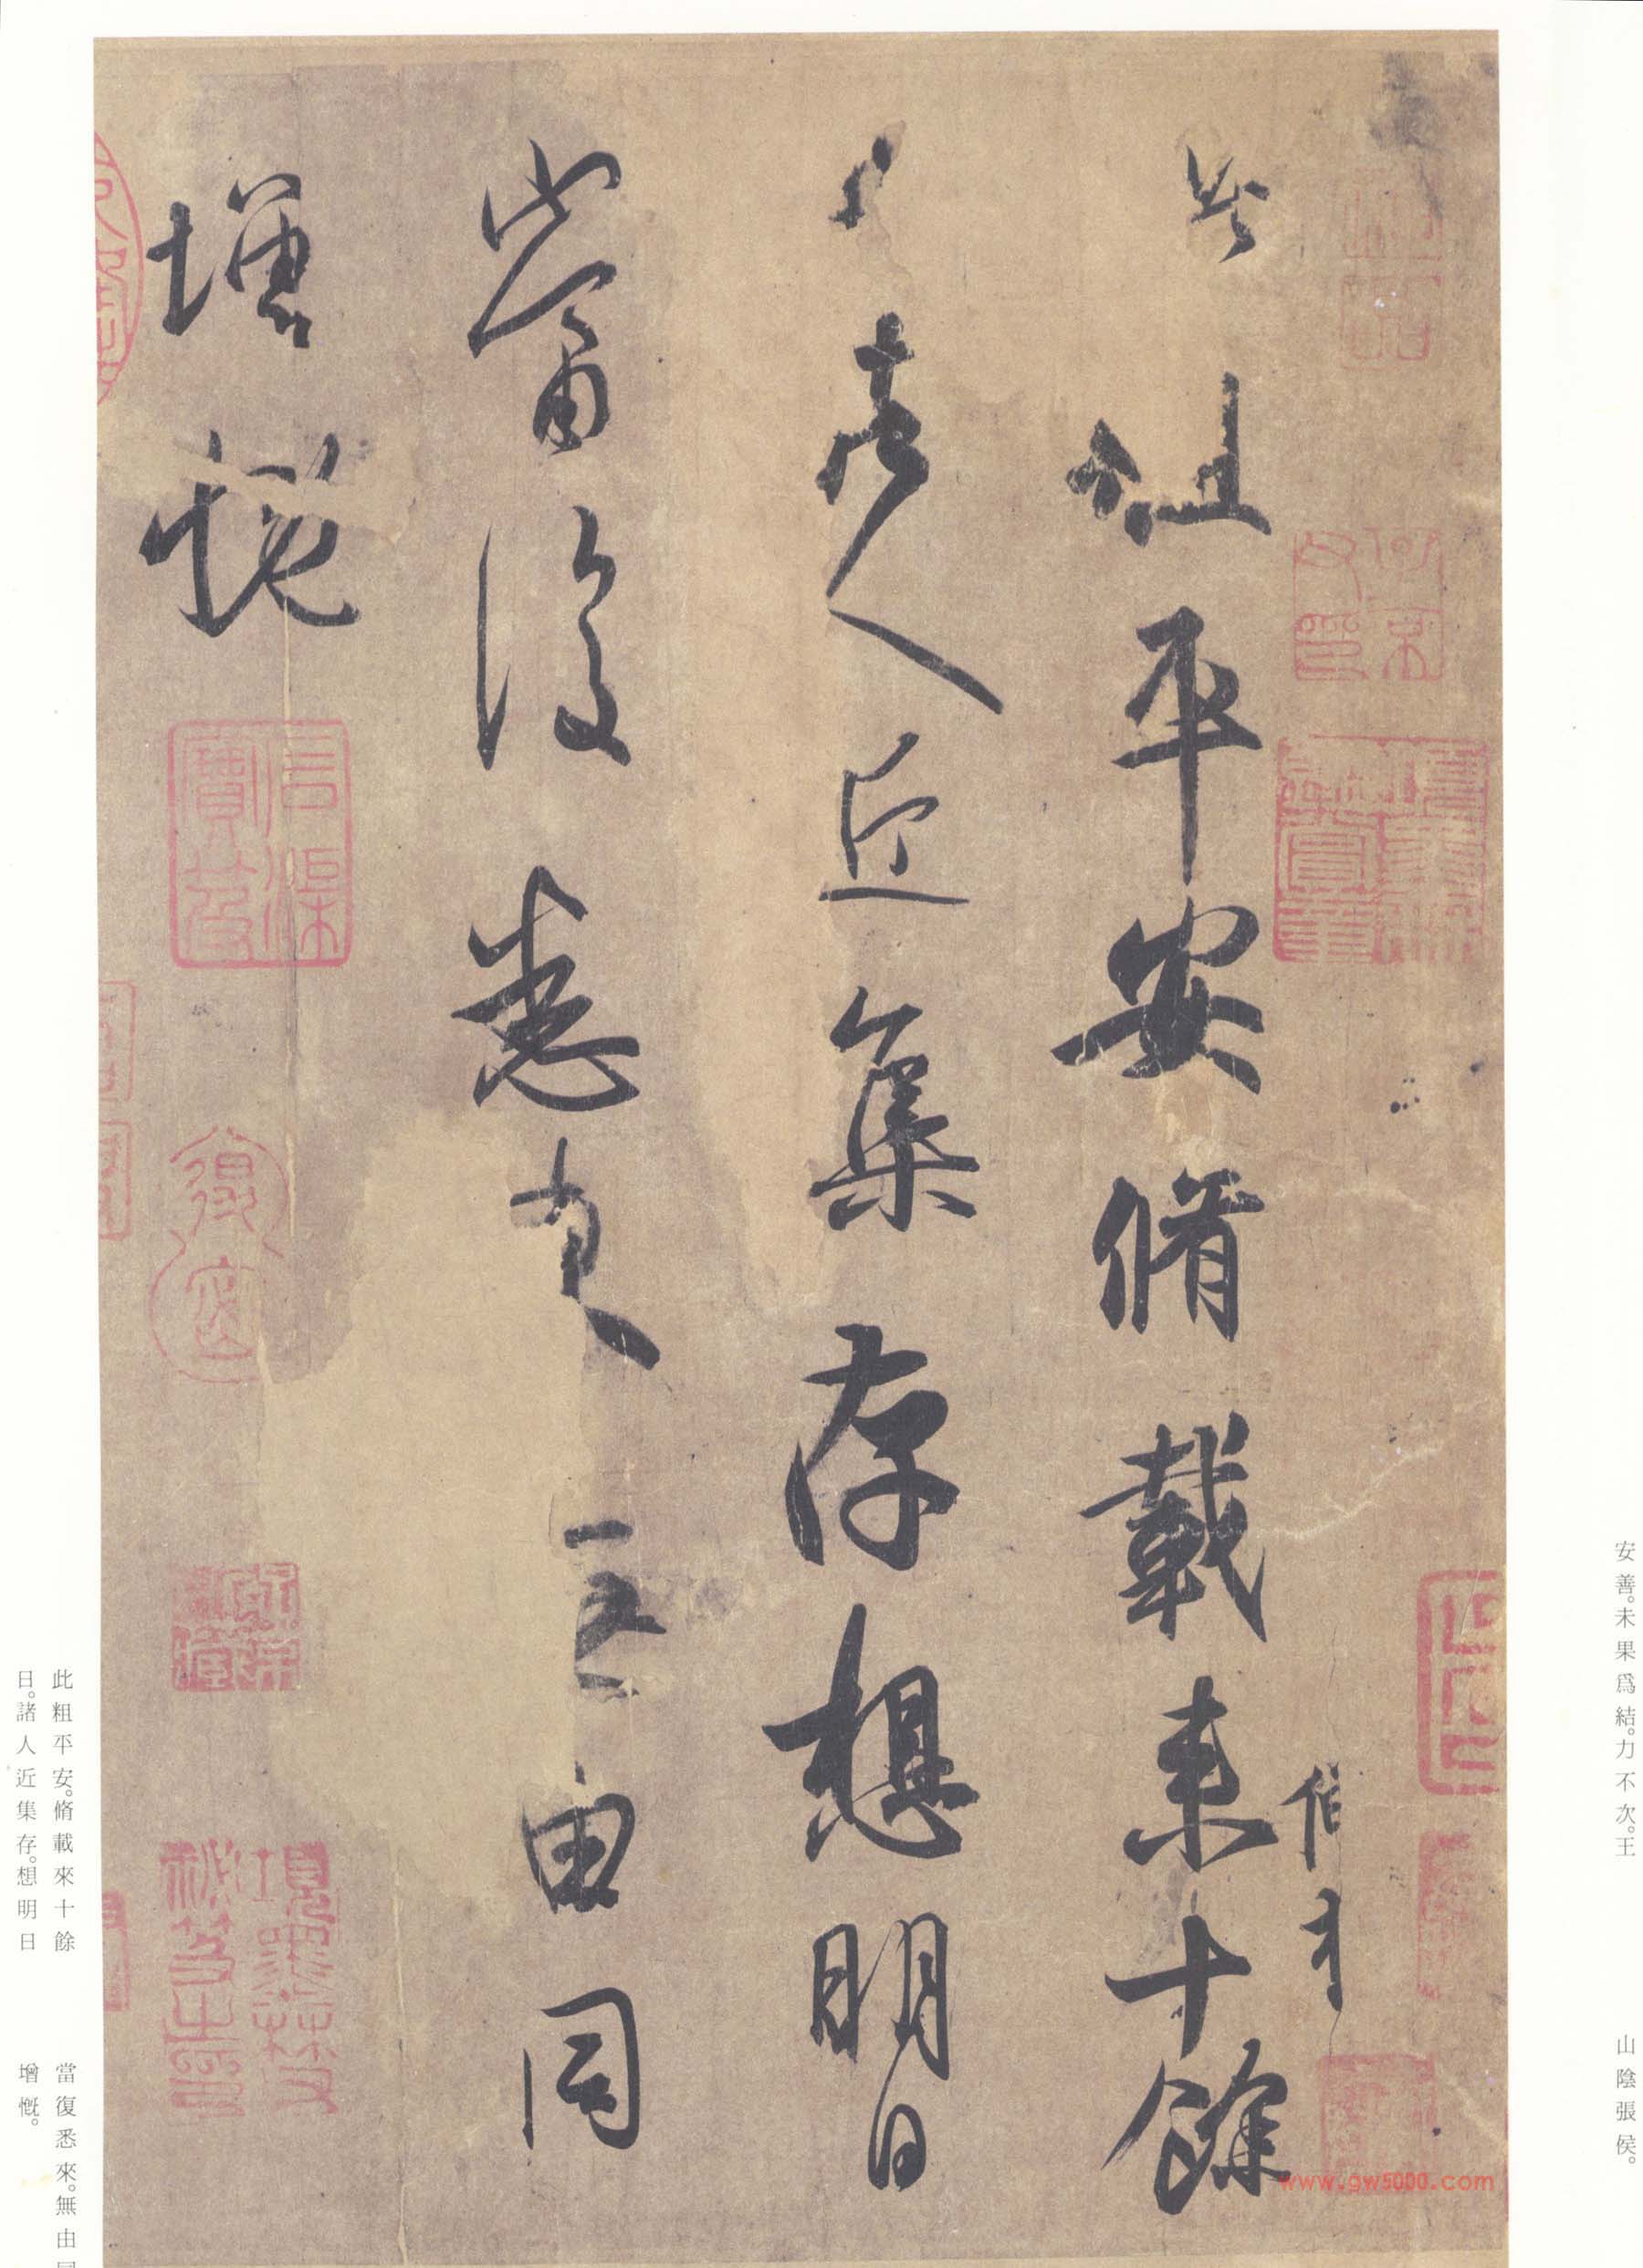 安善。未果爲結。力不次。王
山陰張侯。
此粗平安脩載來十餘
日諸人近集存想明日
當復悉來無由同
增慨
石渠寶笈
項墨林父祕笈之印
www.gw5000.com
此粗平安。脩載來十餘
日。諸人近集存。想明日
當復悉來。無由同
增慨。